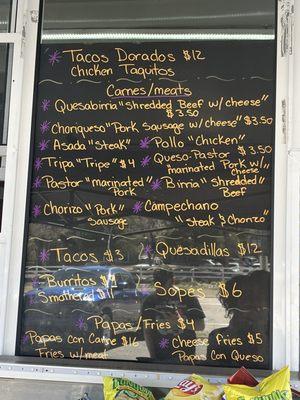 Tacos Dorados $12
Chicken Taquitos
Carnes/meats
Quesabirria "Shredded Beef w/ cheese"
$3.50
Chorqueso "Pork Sausage w/ cheese" $3.50
Asada "steak"
Pollo "Chicken"
Tripa "Tripe" $4
Queso-Pastor $3.50
marinated Pork w/
cheese
Pastor "marinated"
Pork
Birria "shredded"
Beef
Chorizo "Pork"
Sausage
Campechano
"steak & Chorizo"
Tacos $3
Quesadillas $12
Burritos
Smothered $11
Sopes $6
Papas/Fries $4
Papas Con Carne $16
Fries w/ meat
Cheese Fries $5
Papas con Queso
Lay's